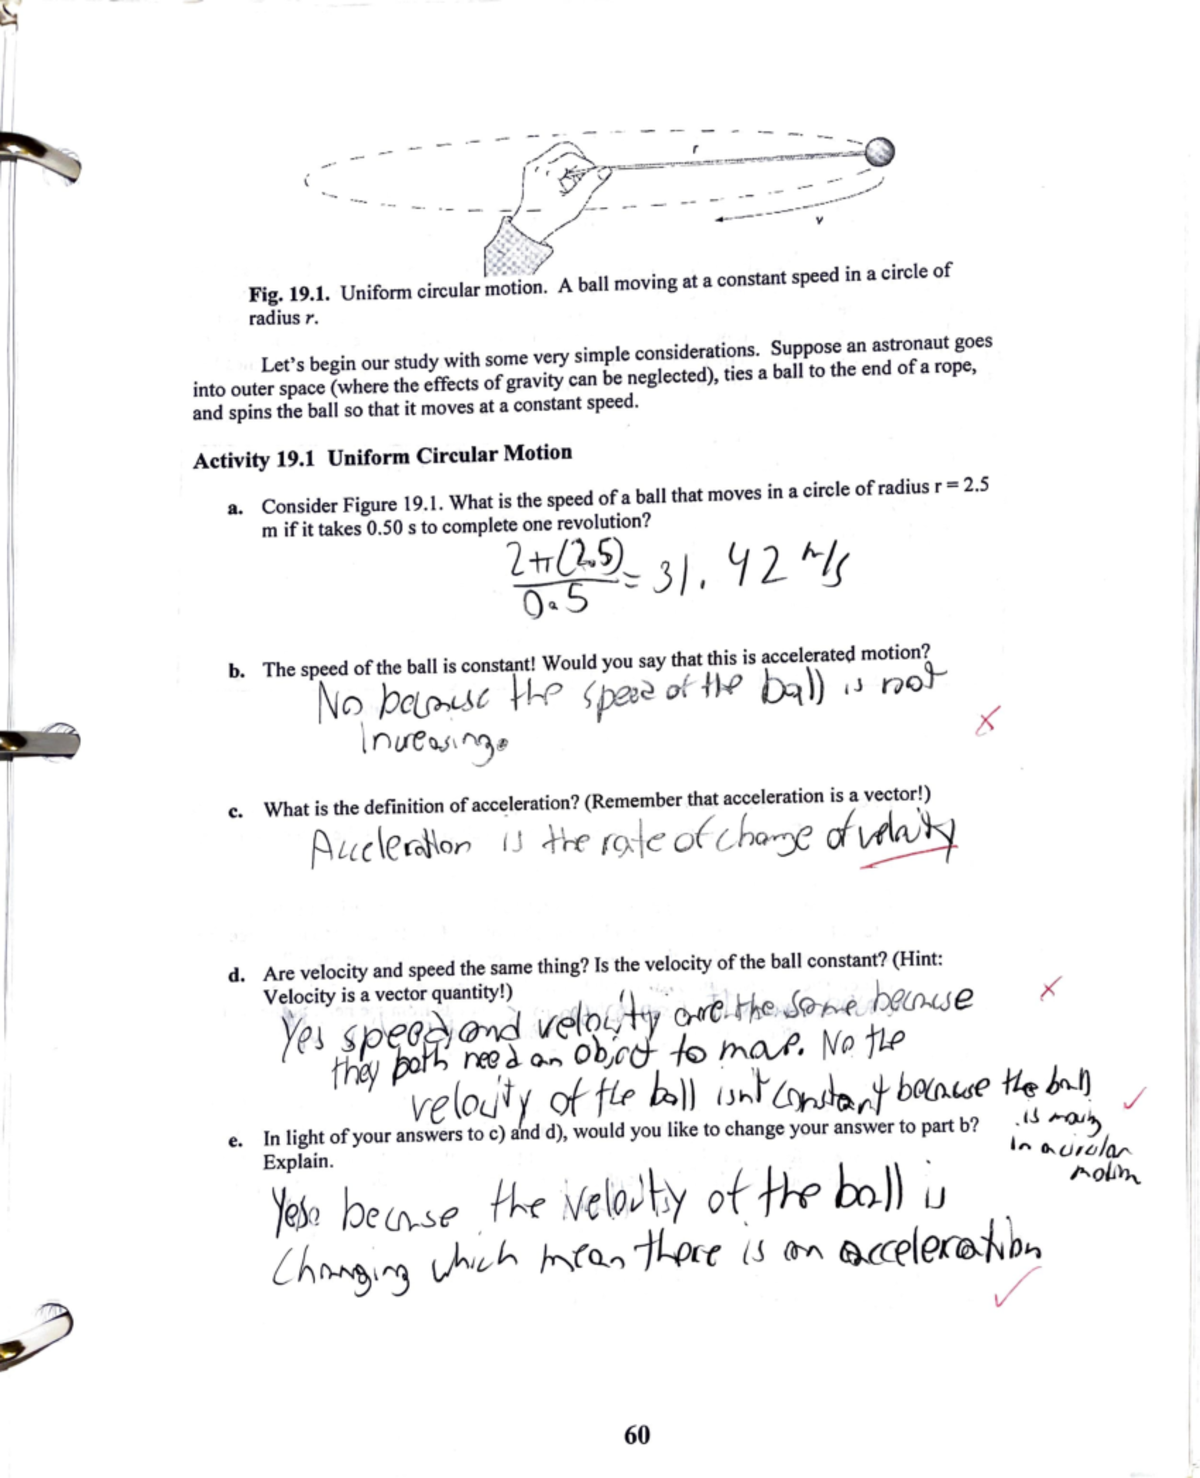 r
v
Fig. 19.1. Uniform circular motion. A ball moving at a constant speed in a circle of
radius r.
Let's begin our study with some very simple considerations. Suppose an astronaut goes
into outer space (where the effects of gravity can be neglected), ties a ball to the end of a rope,
and spins the ball so that it moves at a constant speed.
Activity 19.1 Uniform Circular Motion
a. Consider Figure 19.1. What is the speed of a ball that moves in a circle of radius r = 2.5
m if it takes 0.50 s to complete one revolution?
2π(2.5)
0.5
= 31.42 m/s
b. The speed of the ball is constant! Would you say that this is accelerated motion?
No because the speed of the ball is not
Increasing.
c. What is the definition of acceleration? (Remember that acceleration is a vector!)
Acceleration is the rate of change of velocity
d. Are velocity and speed the same thing? Is the velocity of the ball constant? (Hint:
Velocity is a vector quantity!)
Yes speed and velocity are the same because
they both need an object to No the
velocity of the ball isn't constant because the ball
is
in a circular
motion
e. In light of your answers to c) and d), would you like to change your answer to part b?
Explain.
Yes. because the velocity of the ball is
Changing which mean there is an acceleration
60